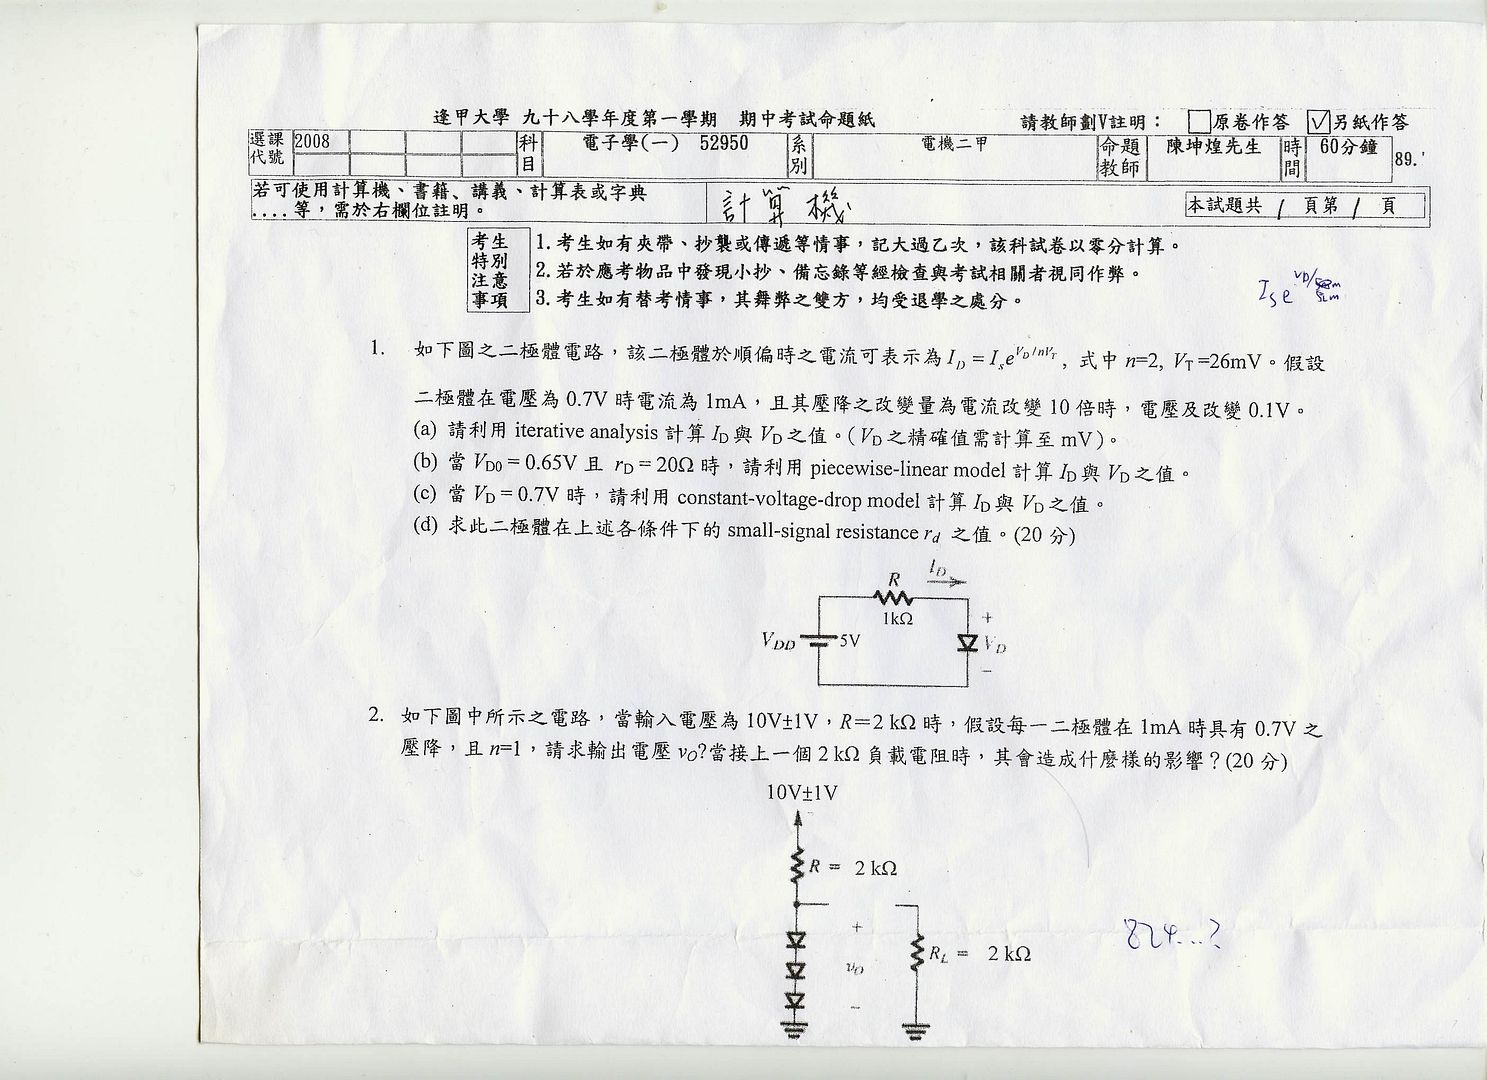 逢甲大學 九十八學年度第一學期 期中考試命題紙 請教師劃V註明： □原卷作答 ☑另紙作答
選課代號 2008 科目 電子學(一) 52950 系別 電機二甲 命題教師 陳坤煌先生 時間 60分鐘 89.'
若可使用計算機、書籍、講義、計算表或字典
....等，需於右欄位註明。 計算機 本試題共 1 頁第 1 頁
考生特別注意事項
1.考生如有夾帶、抄襲或傳遞等情事，記大過乙次，該科試卷以零分計算。
2.若於應考物品中發現小抄、備忘錄等經檢查與考試相關者視同作弊。
3.考生如有替考情事，其舞弊之雙方，均受退學之處分。
Is e VD/52m
1. 如下圖之二極體電路，該二極體於順偏時之電流可表示為 I_D = I_s e^{V_D/nV_T}, 式中 n=2, V_T =26mV。假設
二極體在電壓為 0.7V 時電流為 1mA，且其壓降之改變量為電流改變 10 倍時，電壓及改變 0.1V。
(a) 請利用 iterative analysis 計算 I_D 與 V_D 之值。( V_D 之精確值需計算至 mV)。
(b) 當 V_D0 = 0.65V 且 r_D = 20Ω 時，請利用 piecewise-linear model 計算 I_D 與 V_D 之值。
(c) 當 V_D = 0.7V 時，請利用 constant-voltage-drop model 計算 I_D 與 V_D 之值。
(d) 求此二極體在上述各條件下的 small-signal resistance r_d 之值。(20 分)
I_D
R
1kΩ
+
V_DD 5V V_D
−
2. 如下圖中所示之電路，當輸入電壓為 10V±1V，R＝2 kΩ 時，假設每一二極體在 1mA 時具有 0.7V 之
壓降，且 n=1，請求輸出電壓 v_O?當接上一個 2 kΩ 負載電阻時，其會造成什麼樣的影響？(20 分)
10V±1V
R = 2 kΩ
+
v_O R_L = 2 kΩ
−
824...?